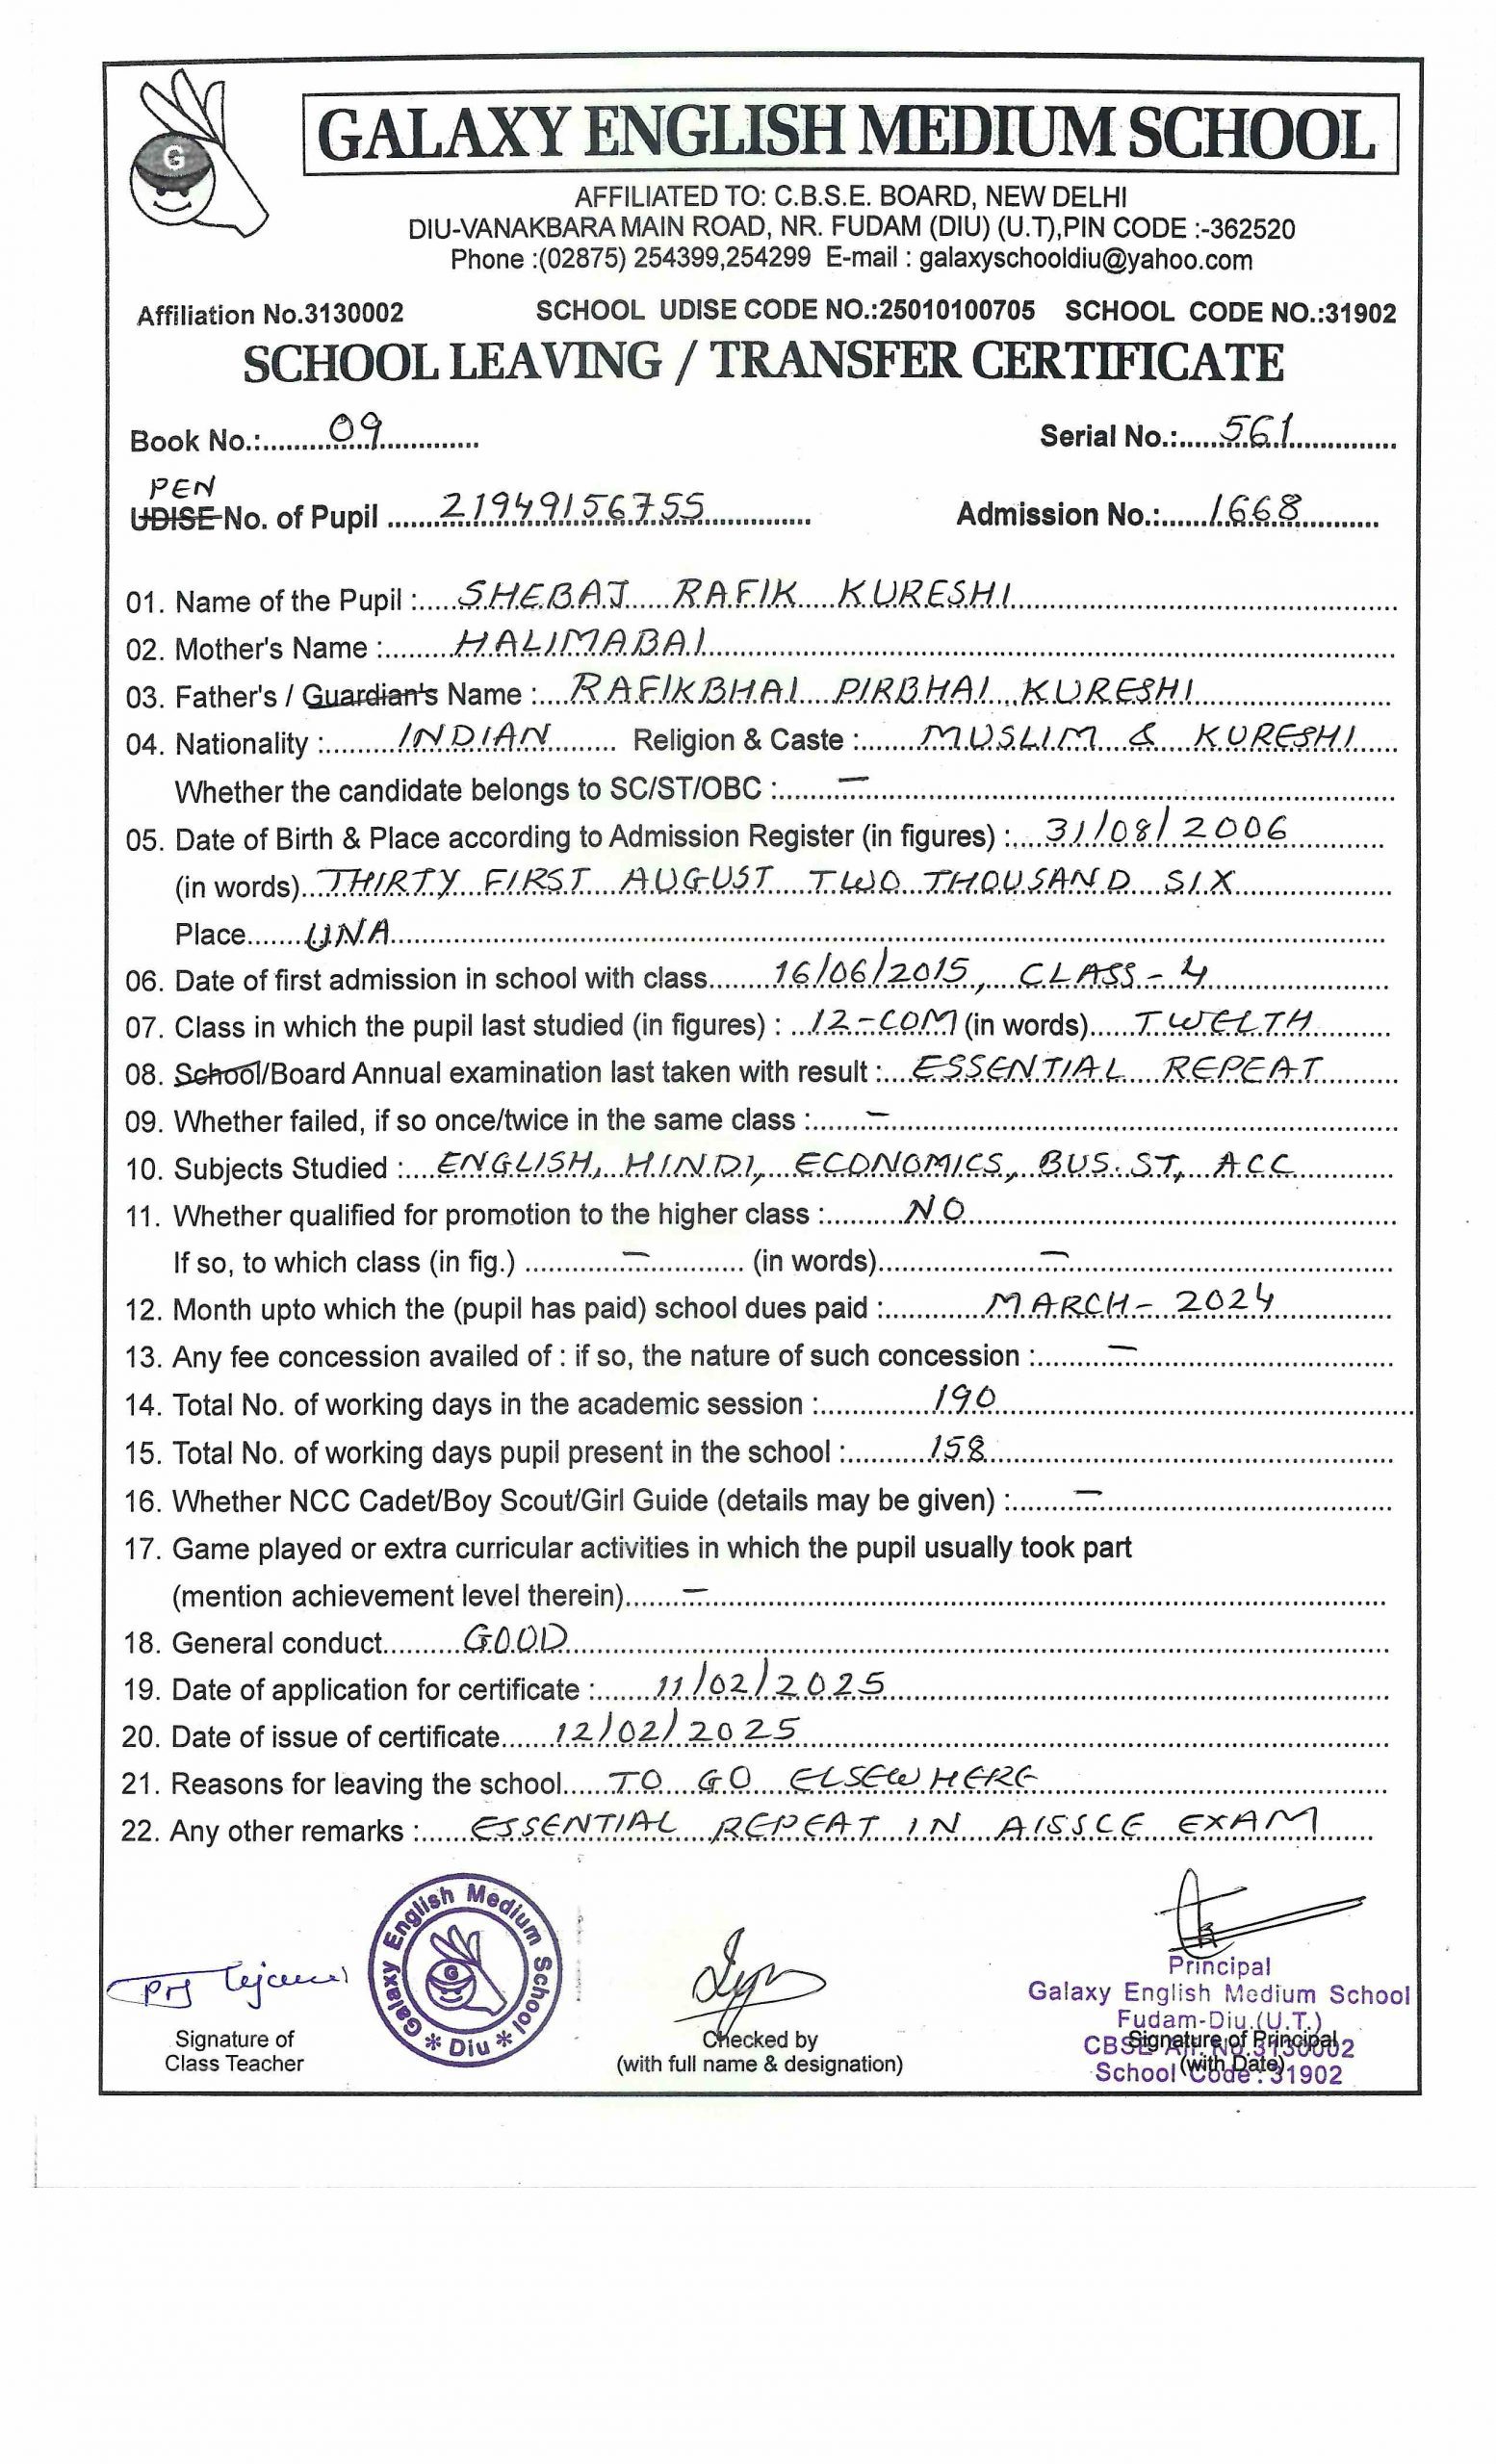 G
GALAXY ENGLISH MEDIUM SCHOOL
AFFILIATED TO: C.B.S.E. BOARD, NEW DELHI
DIU-VANAKBARA MAIN ROAD, NR. FUDAM (DIU) (U.T),PIN CODE :-362520
Phone :(02875) 254399,254299 E-mail : galaxyschooldiu@yahoo.com
Affiliation No.3130002 SCHOOL UDISE CODE NO.:25010100705 SCHOOL CODE NO.:31902
SCHOOL LEAVING / TRANSFER CERTIFICATE
Book No.:........09............. Serial No.:......561..............
PEN
UDISE No. of Pupil ......21949156755.............. Admission No.:......1668...........
01. Name of the Pupil :.....SHEBAJ RAFIK KURESHI
02. Mother's Name :.........HALIMABAI
03. Father's / Guardian's Name :....RAFIKBHAI PIRBHAI KURESHI
04. Nationality :.........INDIAN......... Religion & Caste :.......MUSLIM & KURESHI......
Whether the candidate belongs to SC/ST/OBC :........—
05. Date of Birth & Place according to Admission Register (in figures) :....31/08/2006
(in words)..THIRTY FIRST AUGUST TWO THOUSAND SIX
Place.......UNA
06. Date of first admission in school with class........16/06/2015, CLASS-4
07. Class in which the pupil last studied (in figures) : ..12-COM (in words).....TWELTH
08. School/Board Annual examination last taken with result :...ESSENTIAL REPEAT
09. Whether failed, if so once/twice in the same class :.......—
10. Subjects Studied :....ENGLISH, HINDI, ECONOMICS, BUS. ST, ACC
11. Whether qualified for promotion to the higher class :.........NO
If so, to which class (in fig.) ............—............ (in words)....................—
12. Month upto which the (pupil has paid) school dues paid :............MARCH- 2024
13. Any fee concession availed of : if so, the nature of such concession :.........—
14. Total No. of working days in the academic session :..............190
15. Total No. of working days pupil present in the school :..........158
16. Whether NCC Cadet/Boy Scout/Girl Guide (details may be given) :.......—
17. Game played or extra curricular activities in which the pupil usually took part
(mention achievement level therein).......—
18. General conduct..........GOOD
19. Date of application for certificate :.......11/02/2025
20. Date of issue of certificate......12/02/2025
21. Reasons for leaving the school.....TO GO ELSEWHERE
22. Any other remarks :......ESSENTIAL REPEAT IN AISSCE EXAM
Galaxy English Medium School
G
* Diu *
Signature of
Class Teacher
Checked by
(with full name & designation)
Principal
Galaxy English Medium School
Fudam-Diu.(U.T.)
CBSE Aff. No.3130002
Signature of Principal
School Code : 31902
(with Date)